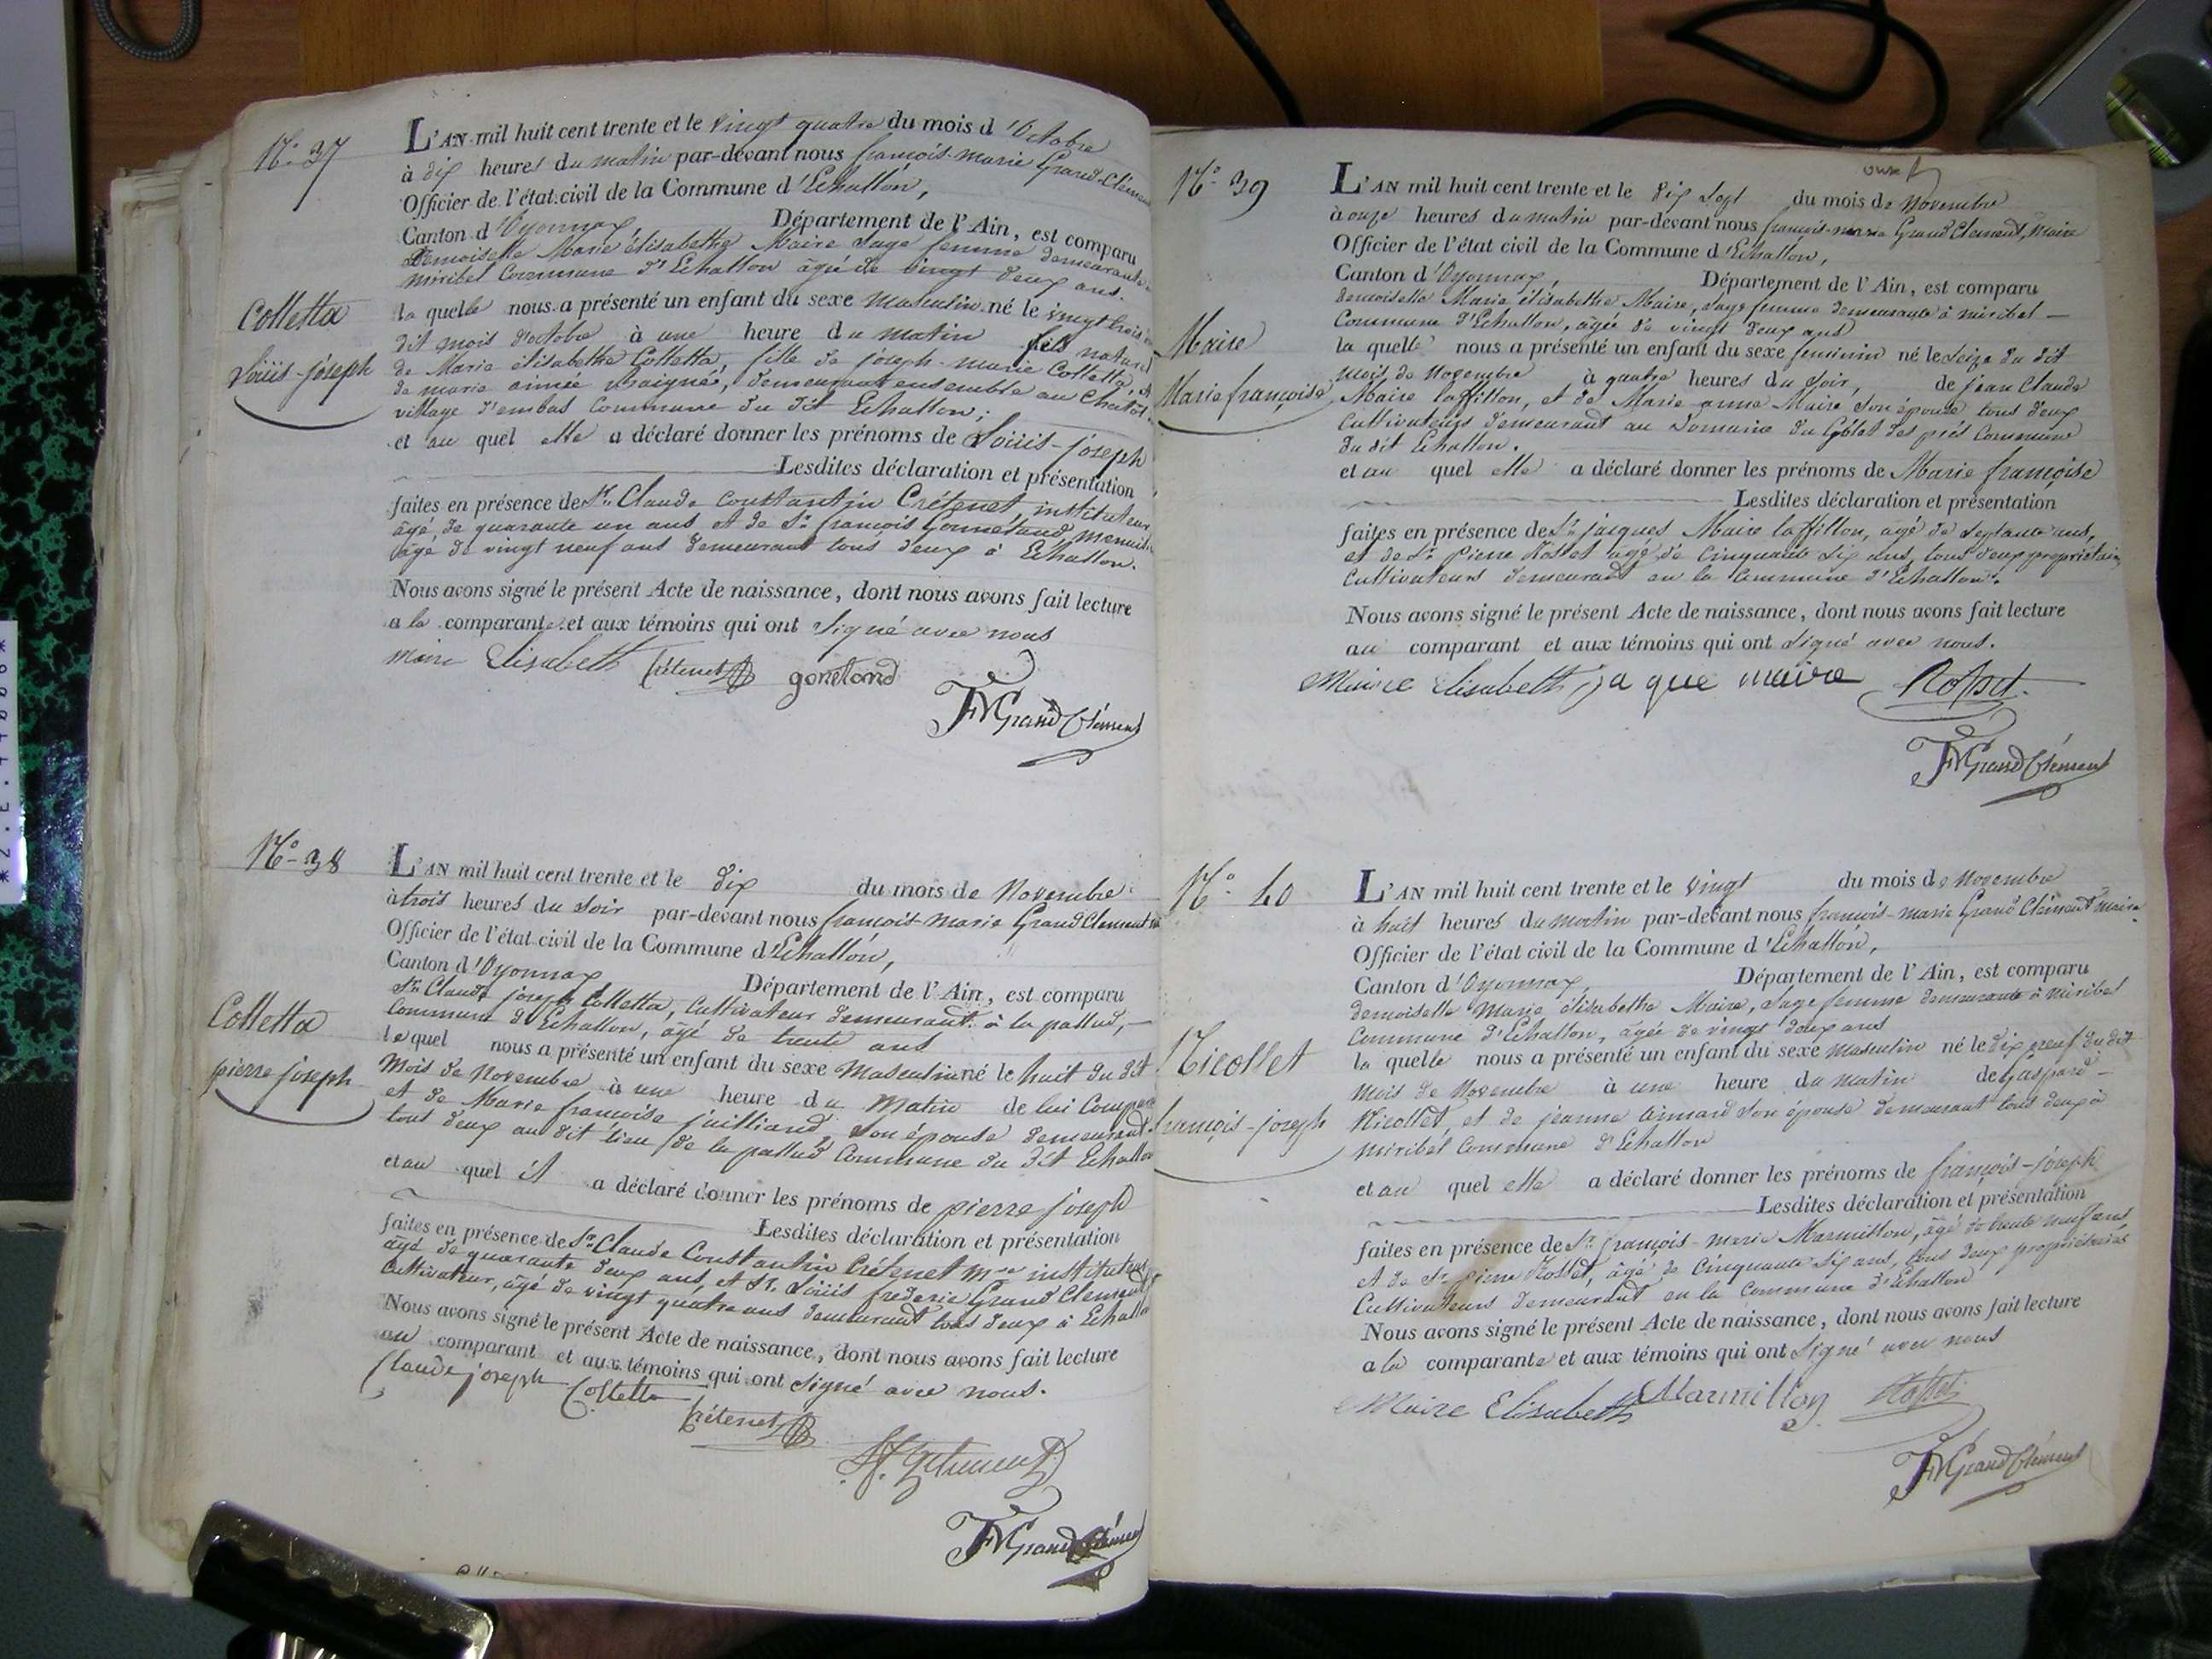 N.° 37
L'AN mil huit cent trente et le vingt quatre du mois d'Octobre
à dix heures du matin par-devant nous françois-marie Grand-Clément
Officier de l'état civil de la Commune d'Echallon,
Canton d'Oyonnax Département de l'Ain, est comparu
Demoiselle Marie élisabethe Maire Sage femme demeurante
miribel Commune d'Echallon âgée de vingt deux ans.
la quelle nous a présenté un enfant du sexe masculin né le vingt trois
dit mois d'octobre à une heure du matin fils naturel
Colletta
Loüis-joseph
de Marie élisabethe Colletta, fille de joseph-marie Colletta, et
de marie aimée demeurant ensemble au
village d'embas Commune du dit Echallon;
et au quel elle a déclaré donner les prénoms de Loüis-joseph
Lesdites déclaration et présentation
faites en présence de Sr. Claude Constantin Crétenet, instituteur
âgé, de quarante un ans et de Sr. françois Gonnétand, menuisier
âgé de vingt neuf ans demeurant tous deux à Echallon.
Nous avons signé le présent Acte de naissance, dont nous avons fait lecture
a la comparante et aux témoins qui ont Signé avec nous
maire Elisabeth Crétenet gonetand
FMGrand Clément
N.° 38
L'AN mil huit cent trente et le dix du mois de Novembre
à trois heures du soir par-devant nous françois-marie Grand Clement
Officier de l'état civil de la Commune d'Echallon,
Canton d'Oyonnax Département de l'Ain, est comparu
Sr. Claude joseph Colletta, Cultivateur demeurant à la pallud,
Commune d'Echallon, âgé de trente ans
Colletta
pierre joseph
le quel nous a présenté un enfant du sexe Masculin né le huit du dit
Mois de Novembre à une heure du Matin de lui
et de Marie françoise juilliard Son épouse demeurant
tous deux au dit lieu de la pallud Commune du dit Echallon
et au quel il a déclaré donner les prénoms de pierre joseph
Lesdites déclaration et présentation
faites en présence de Sr. Claude Constantin Crétenet instituteur
âgé de quarante deux ans, et Sr. Loüis frederic Grand Clement
Cultivateur, âgé de vingt quatre ans demeurant tous deux à Echallon
Nous avons signé le présent Acte de naissance, dont nous avons fait lecture
au comparant et aux témoins qui ont Signé avec nous.
Claude joseph Colletta
Crétenet
FMGrand Clément
N.° 39
L'AN mil huit cent trente et le dix Sept du mois de Novembre
à onze heures du matin par-devant nous françois-marie Grand Clement, Maire
Officier de l'état civil de la Commune d'Echallon,
Canton d'Oyonnax, Département de l'Ain, est comparu
demoiselle Marie élisabethe Maire, Sage femme demeurante à miribel
Commune d'Echallon, âgée de vingt deux ans
Maire
Marie françoise
la quelle nous a présenté un enfant du sexe feminin né le Seize du dit
Mois de Novembre à quatre heures du Soir, de jean Claude
Maire laffillon, et de Marie anne Maire Son épouse tous deux
Cultivateurs demeurant au domaine du des prés Commune
du dit Echallon.
et au quel elle a déclaré donner les prénoms de Marie françoise
Lesdites déclaration et présentation
faites en présence de Sr. jacques Maire laffillon, agé de Septante ans,
et de Sr. Pierre Rosset agé de Cinquante Six ans, tous deux propriétaires
Cultivateurs demeurant en la Commune d'Echallon.
Nous avons signé le présent Acte de naissance, dont nous avons fait lecture
au comparant et aux témoins qui ont Signé avec nous.
Maire Elisabeth ja que maire Rosset
FMGrand Clément
N.° 40
L'AN mil huit cent trente et le Vingt du mois de Novembre
à huit heures du matin par-devant nous françois-marie Grand Clément Maire
Officier de l'état civil de la Commune d'Echallon,
Canton d'Oyonnax, Département de l'Ain, est comparu
demoiselle Marie élisabethe Maire, Sage femme demeurante à Miribel
Commune d'Echallon, âgée de vingt deux ans
Nicollet
françois-joseph
la quelle nous a présenté un enfant du sexe Masculin né le dix neuf du dit
Mois de Novembre à une heure du matin de Gaspard
Nicollet, et de jeanne Son épouse demeurant tous deux à
Miribel Commune d'Echallon
et au quel elle a déclaré donner les prénoms de françois-joseph
Lesdites déclaration et présentation
faites en présence de Sr. françois-marie Marmillon, âgé de trente neuf ans,
et de Sr. Pierre Rosset, âgé de Cinquante Six ans, tous deux propriétaires
Cultivateurs demeurant en la Commune d'Echallon
Nous avons signé le présent Acte de naissance, dont nous avons fait lecture
a la comparante et aux témoins qui ont Signé avec nous
Maire Elisabeth Marmillon Rosset
FMGrand Clément